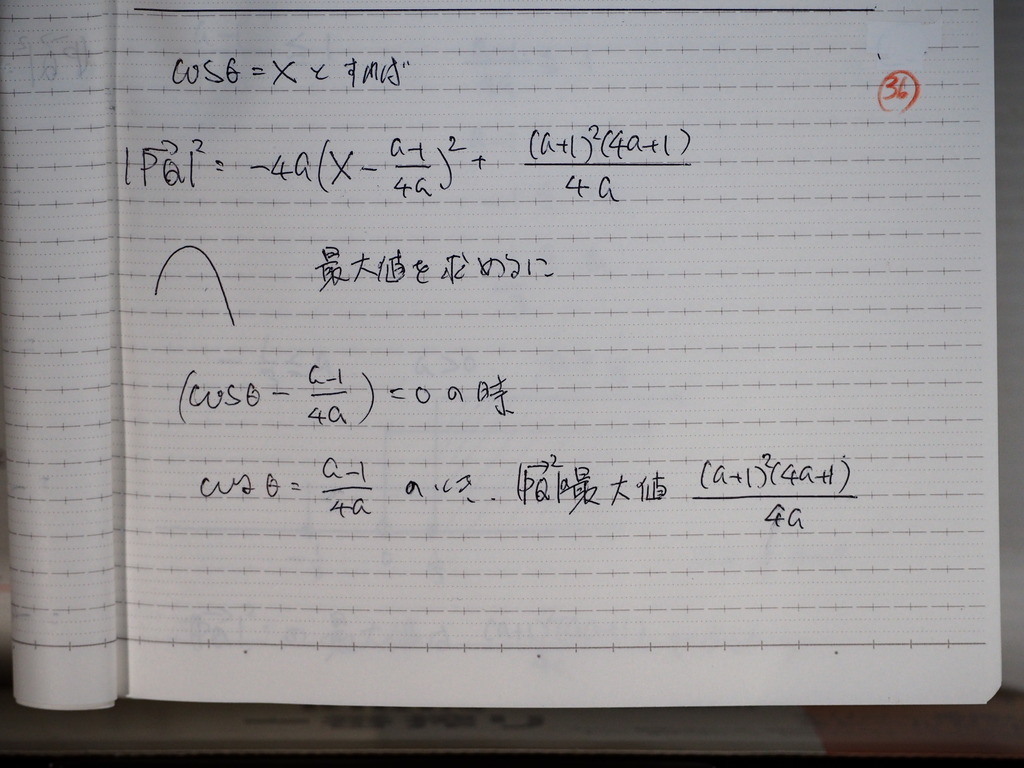 36
cosθ = X とすれば
|PQ→|² = -4a(X - (a-1)/4a)² + (a+1)²(4a+1)/4a
最大値を求めるに
(cosθ - (a-1)/4a) = 0 の時
cosθ = (a-1)/4a のとき. |PQ→|²の最大値 (a+1)²(4a+1)/4a